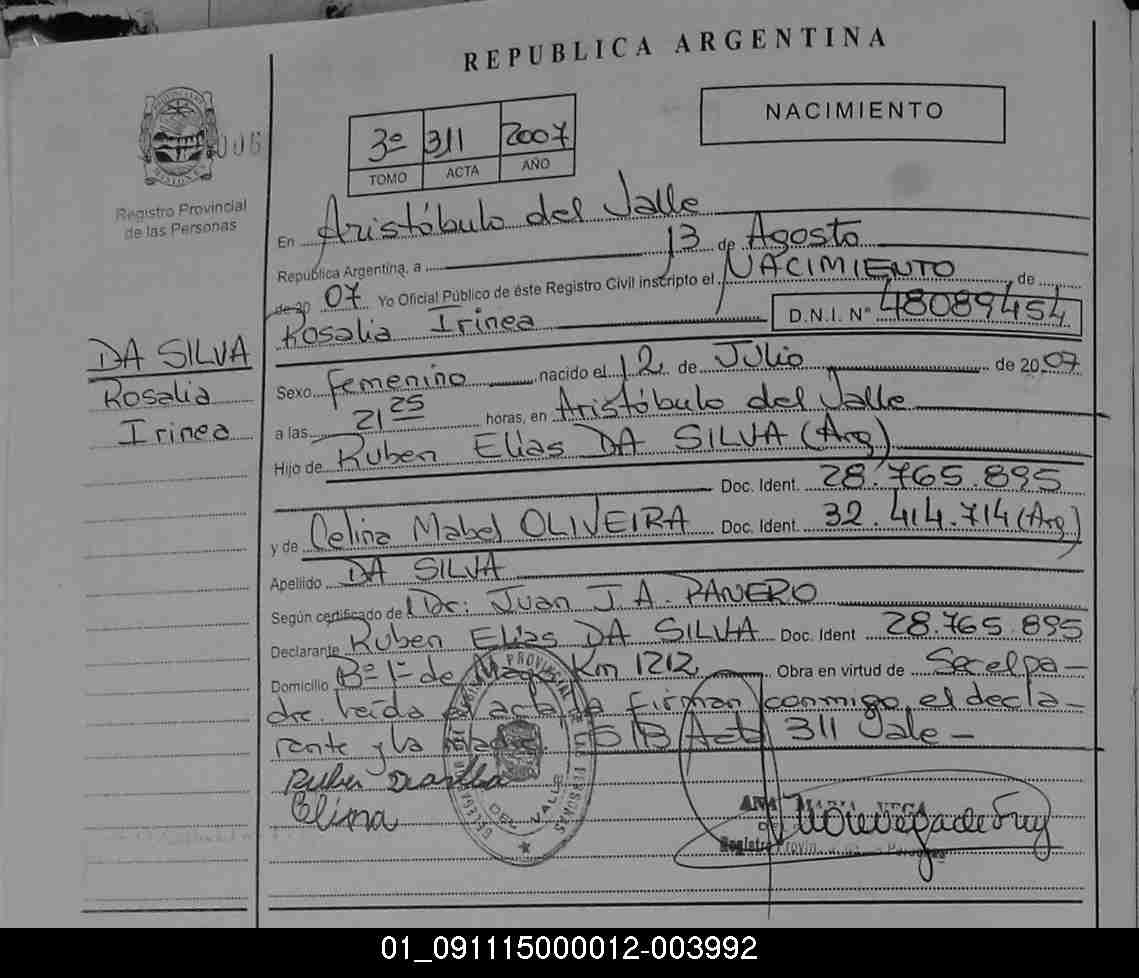 REPUBLICA ARGENTINA
NACIMIENTO
3º 311 2007
TOMO ACTA AÑO
Registro Provincial
de las Personas
En Aristóbulo del Valle
República Argentina, a 13 de Agosto
de 20 07 Yo Oficial Público de éste Registro Civil inscripto el NACIMIENTO de
Rosalia Irinea D.N.I. Nº 48089454
DA SILVA
Rosalia
Irinea
Sexo femenino nacido el 12 de Julio de 20 07
a las 21 25 horas, en Aristóbulo del Valle
Hijo de Ruben Elias DA SILVA (Arg)
Doc. Ident. 28.765.895
y de Celina Mabel OLIVEIRA Doc. Ident. 32.414.714 (Arg)
Apellido DA SILVA
Según certificado de Dr: Juan J. A. PANERO
Declarante Ruben Elias DA SILVA Doc. Ident 28.765.895
Domicilio Bº 1º de Mayo Km 1212 Obra en virtud de Ser el pa-
dre. Leida el acta la firman conmigo, el decla-
rante y la madre. Acta 311 Vale -
Celina
ANA MARIA VEGA
Registro Provin
01_091115000012-003992